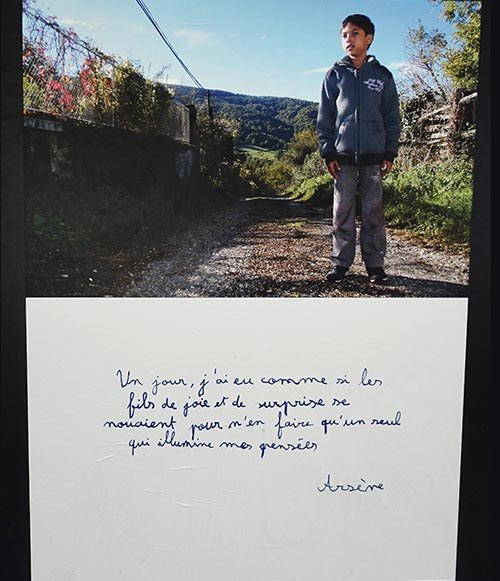 Un jour, j'ai eu comme si les
fils de joie et de surprise se
nouaient pour n'en faire qu'un seul
qui illumine mes pensées
Arsène